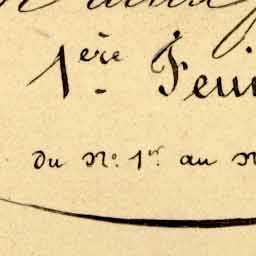 1ère Feui
du N°. 1er. au N